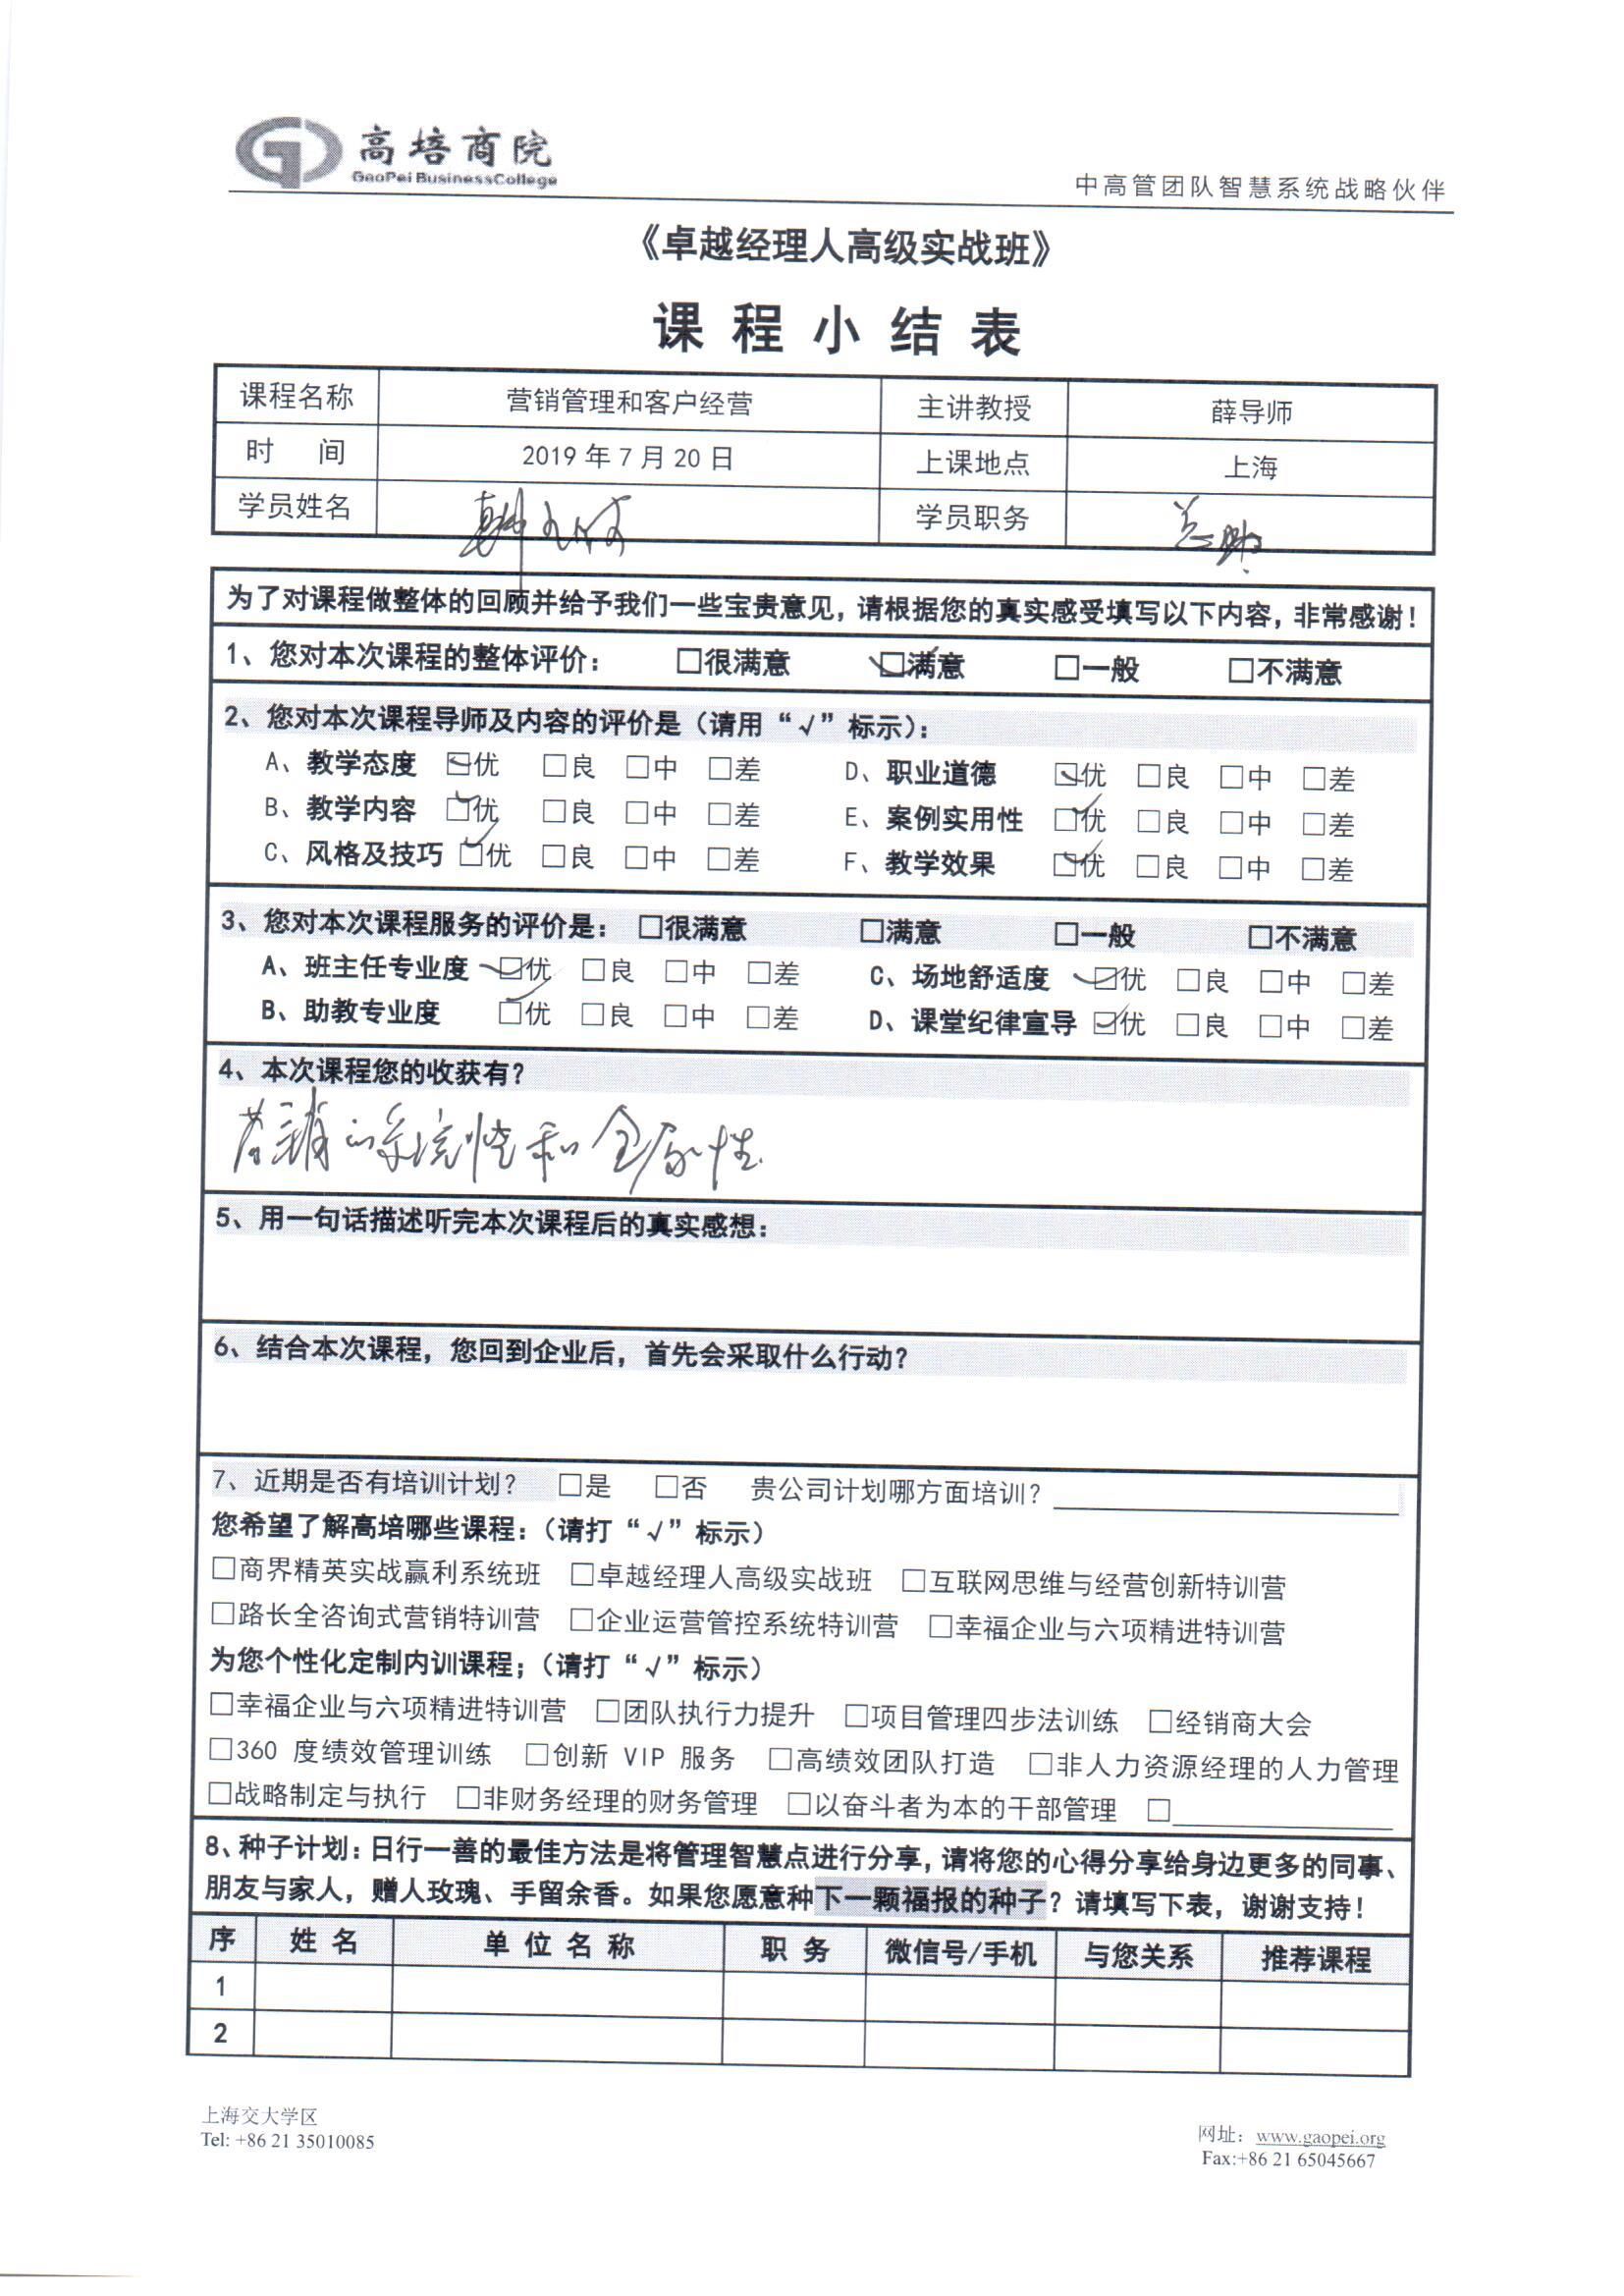 高培商院
GaoPei BusinessCollege
中高管团队智慧系统战略伙伴
《卓越经理人高级实战班》
课程小结表
课程名称 营销管理和客户经营 主讲教授 薛导师
时 间 2019 年 7 月 20 日 上课地点 上海
学员姓名 学员职务 总助
为了对课程做整体的回顾并给予我们一些宝贵意见，请根据您的真实感受填写以下内容，非常感谢！
1、您对本次课程的整体评价： □很满意 ☑满意 □一般 □不满意
2、您对本次课程导师及内容的评价是（请用“√”标示）：
A、教学态度 ☑优 □良 □中 □差 D、职业道德 ☑优 □良 □中 □差
B、教学内容 ☑优 □良 □中 □差 E、案例实用性 ☑优 □良 □中 □差
C、风格及技巧 ☑优 □良 □中 □差 F、教学效果 ☑优 □良 □中 □差
3、您对本次课程服务的评价是： □很满意 □满意 □一般 □不满意
A、班主任专业度 ☑优 □良 □中 □差 C、场地舒适度 ☑优 □良 □中 □差
B、助教专业度 ☑优 □良 □中 □差 D、课堂纪律宣导 ☑优 □良 □中 □差
4、本次课程您的收获有？
营销的系统性和全局性
5、用一句话描述听完本次课程后的真实感想：
6、结合本次课程，您回到企业后，首先会采取什么行动？
7、近期是否有培训计划？ □是 □否 贵公司计划哪方面培训？
您希望了解高培哪些课程：（请打“√”标示）
□商界精英实战赢利系统班 □卓越经理人高级实战班 □互联网思维与经营创新特训营
□路长全咨询式营销特训营 □企业运营管控系统特训营 □幸福企业与六项精进特训营
为您个性化定制内训课程；（请打“√”标示）
□幸福企业与六项精进特训营 □团队执行力提升 □项目管理四步法训练 □经销商大会
□360 度绩效管理训练 □创新 VIP 服务 □高绩效团队打造 □非人力资源经理的人力管理
□战略制定与执行 □非财务经理的财务管理 □以奋斗者为本的干部管理 □
8、种子计划：日行一善的最佳方法是将管理智慧点进行分享，请将您的心得分享给身边更多的同事、
朋友与家人，赠人玫瑰、手留余香。如果您愿意种下一颗福报的种子？请填写下表，谢谢支持！
序 姓 名 单 位 名 称 职 务 微信号/手机 与您关系 推荐课程
1
2
上海交大学区
Tel: +86 21 35010085
网址：www.gaopei.org
Fax:+86 21 65045667